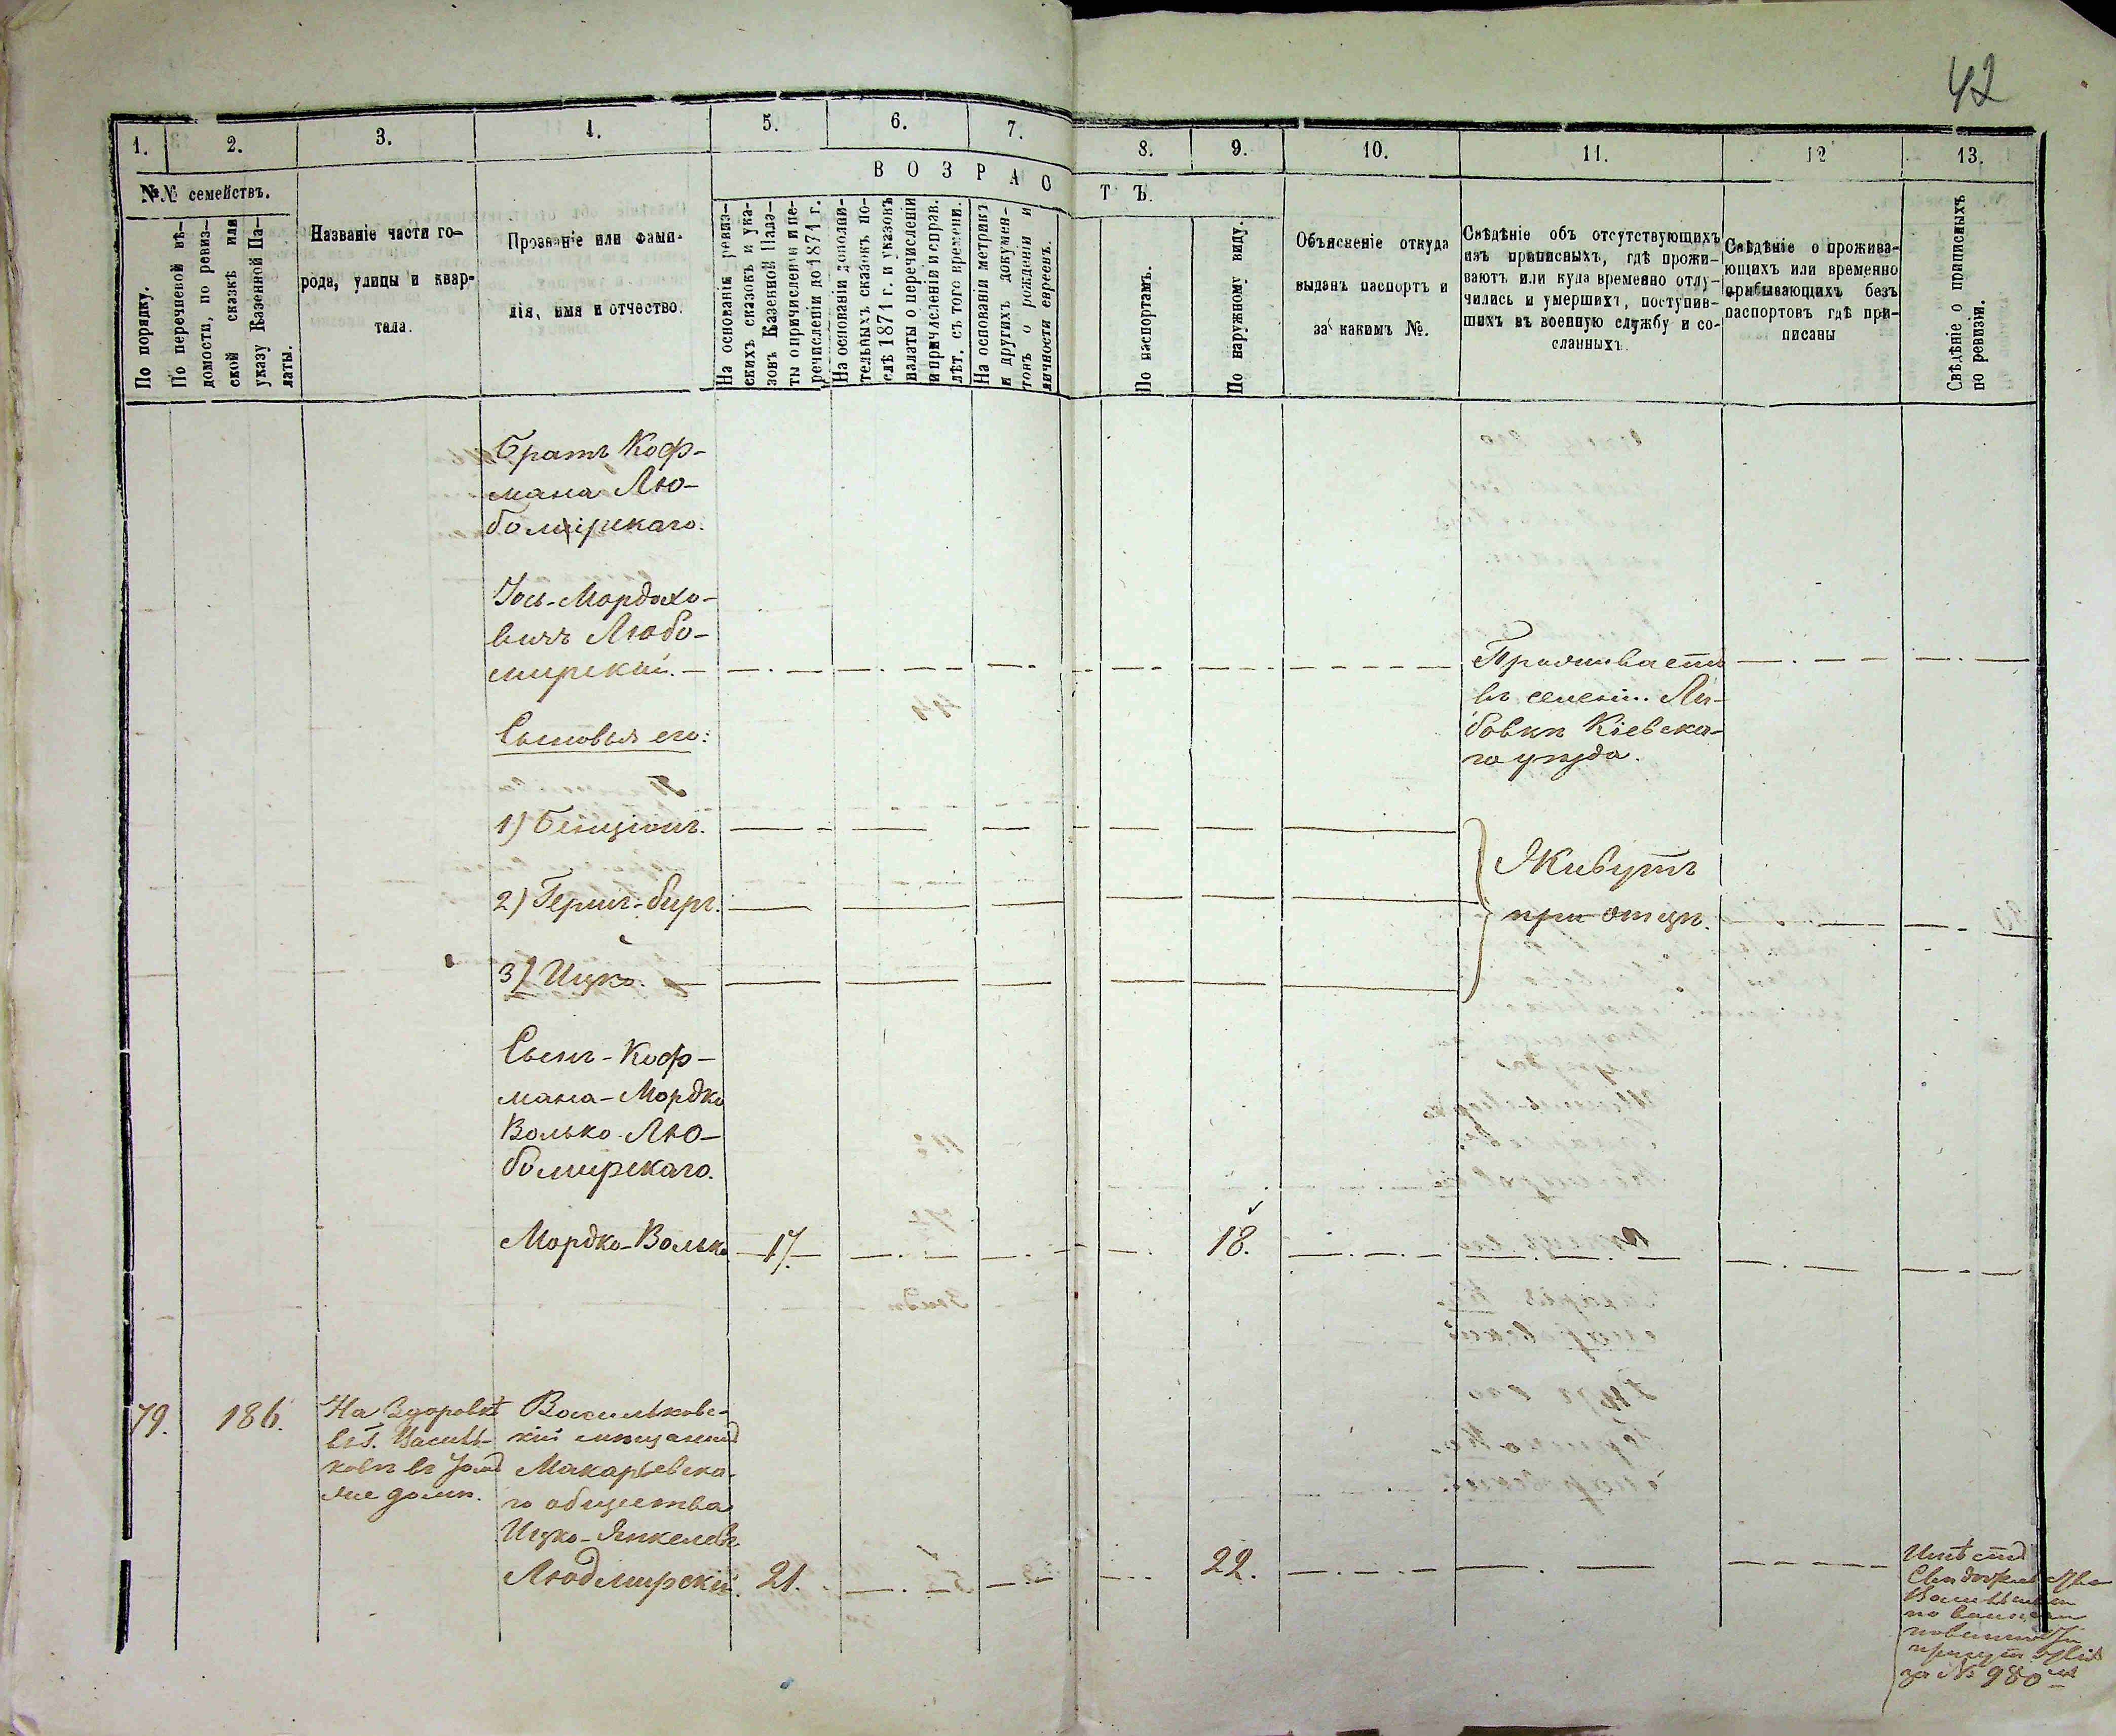 42
1.
2.
3.
4.
5.
6.
7.
8.
9.
10.
11.
12
13.
№№ семействъ.
ВОЗРАС
ТЪ.
По порядку.
По перечневой вѣ-
домости, по ревиз-
ской сказкѣ или
указу Казенной Па-
латы.
Названіе части го-
рода, улицы и квар-
тала.
Прозваніе или фами-
лія, имя и отчество.
На основаніи ревиз-
скихъ сказокъ и ука-
зовъ Казенной Пала-
ты о причисленіи и пе-
речисленіи до 1871 г.
На основаніи дополни-
тельныхъ сказокъ по-
слѣ 1871 г. и указовъ
палаты о перечисленіи
и причисленіи и справ.
лѣт. съ того времени.
На основаніи метрикъ
и другихъ докумен-
товъ о рожденіи и
личности евреевъ.
По паспортамъ.
По наружному виду.
Объясненіе откуда
выданъ паспортъ и
за какимъ №.
Свѣдѣніе объ отсутствующихъ
изъ приписныхъ, гдѣ прожи-
ваютъ или куда временно отлу-
чились и умершихъ, поступив-
шихъ въ военную службу и со-
сланныхъ.
Свѣдѣніе о прожива-
ющихъ или временно
прибывающихъ безъ
паспортовъ гдѣ при-
писаны
Свѣдѣніе о приписныхъ
по ревизіи.
Братъ Коф-
мана Лю-
бомирскаго.
Іось-Мордхо-
вичъ Любо-
мирскій.
Проживаетъ
въ селеніи
Кіевска-
го уѣзда.
Сыновья его:
1) Бенціонъ.
2) Гершъ-Беръ.
3) Ицко.
Живутъ
при отцѣ.
Сынъ-Коф-
мана-Мордко
Волько Лю-
бомирскаго.
Мордко-Волько 17. 18.
79. 186.
въ г. Василь-
ковѣ въ
домѣ.
Васильковс-
кій мѣщанинъ
Макарьевска-
го общества
Ицко-Янкелевъ
Людмирскій. 21. 22.
Имѣетъ
по
за № 980